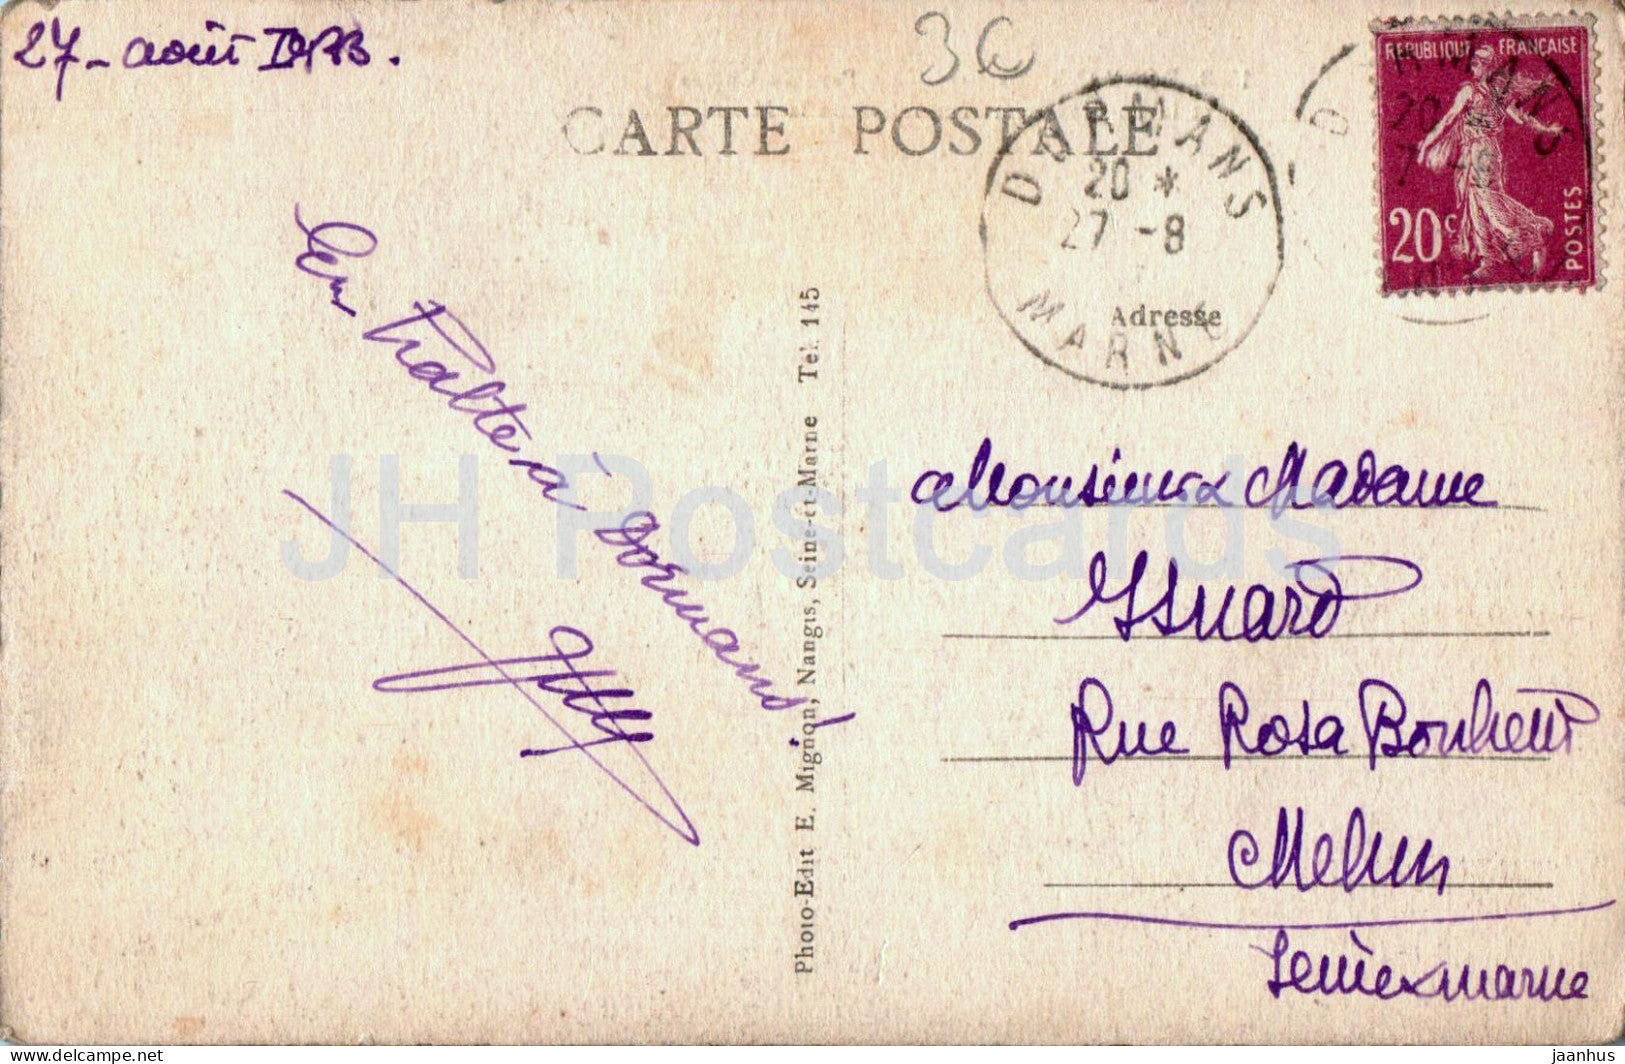 27 - août
3€
CARTE POSTALE
DORMANS
20 *
27 -8
MARNE
REPUBLIQUE FRANÇAISE
20c
POSTES
Adresse
En halte à Dormans!
Photo-Edit E. Mignon, Nangis, Seine-et-Marne Tel. 145
Monsieur & Madame
Isnard
Rue Rosa Bonheur
Melun
Seine & Marne
JH Postcards
delcampe.net
jaanhus